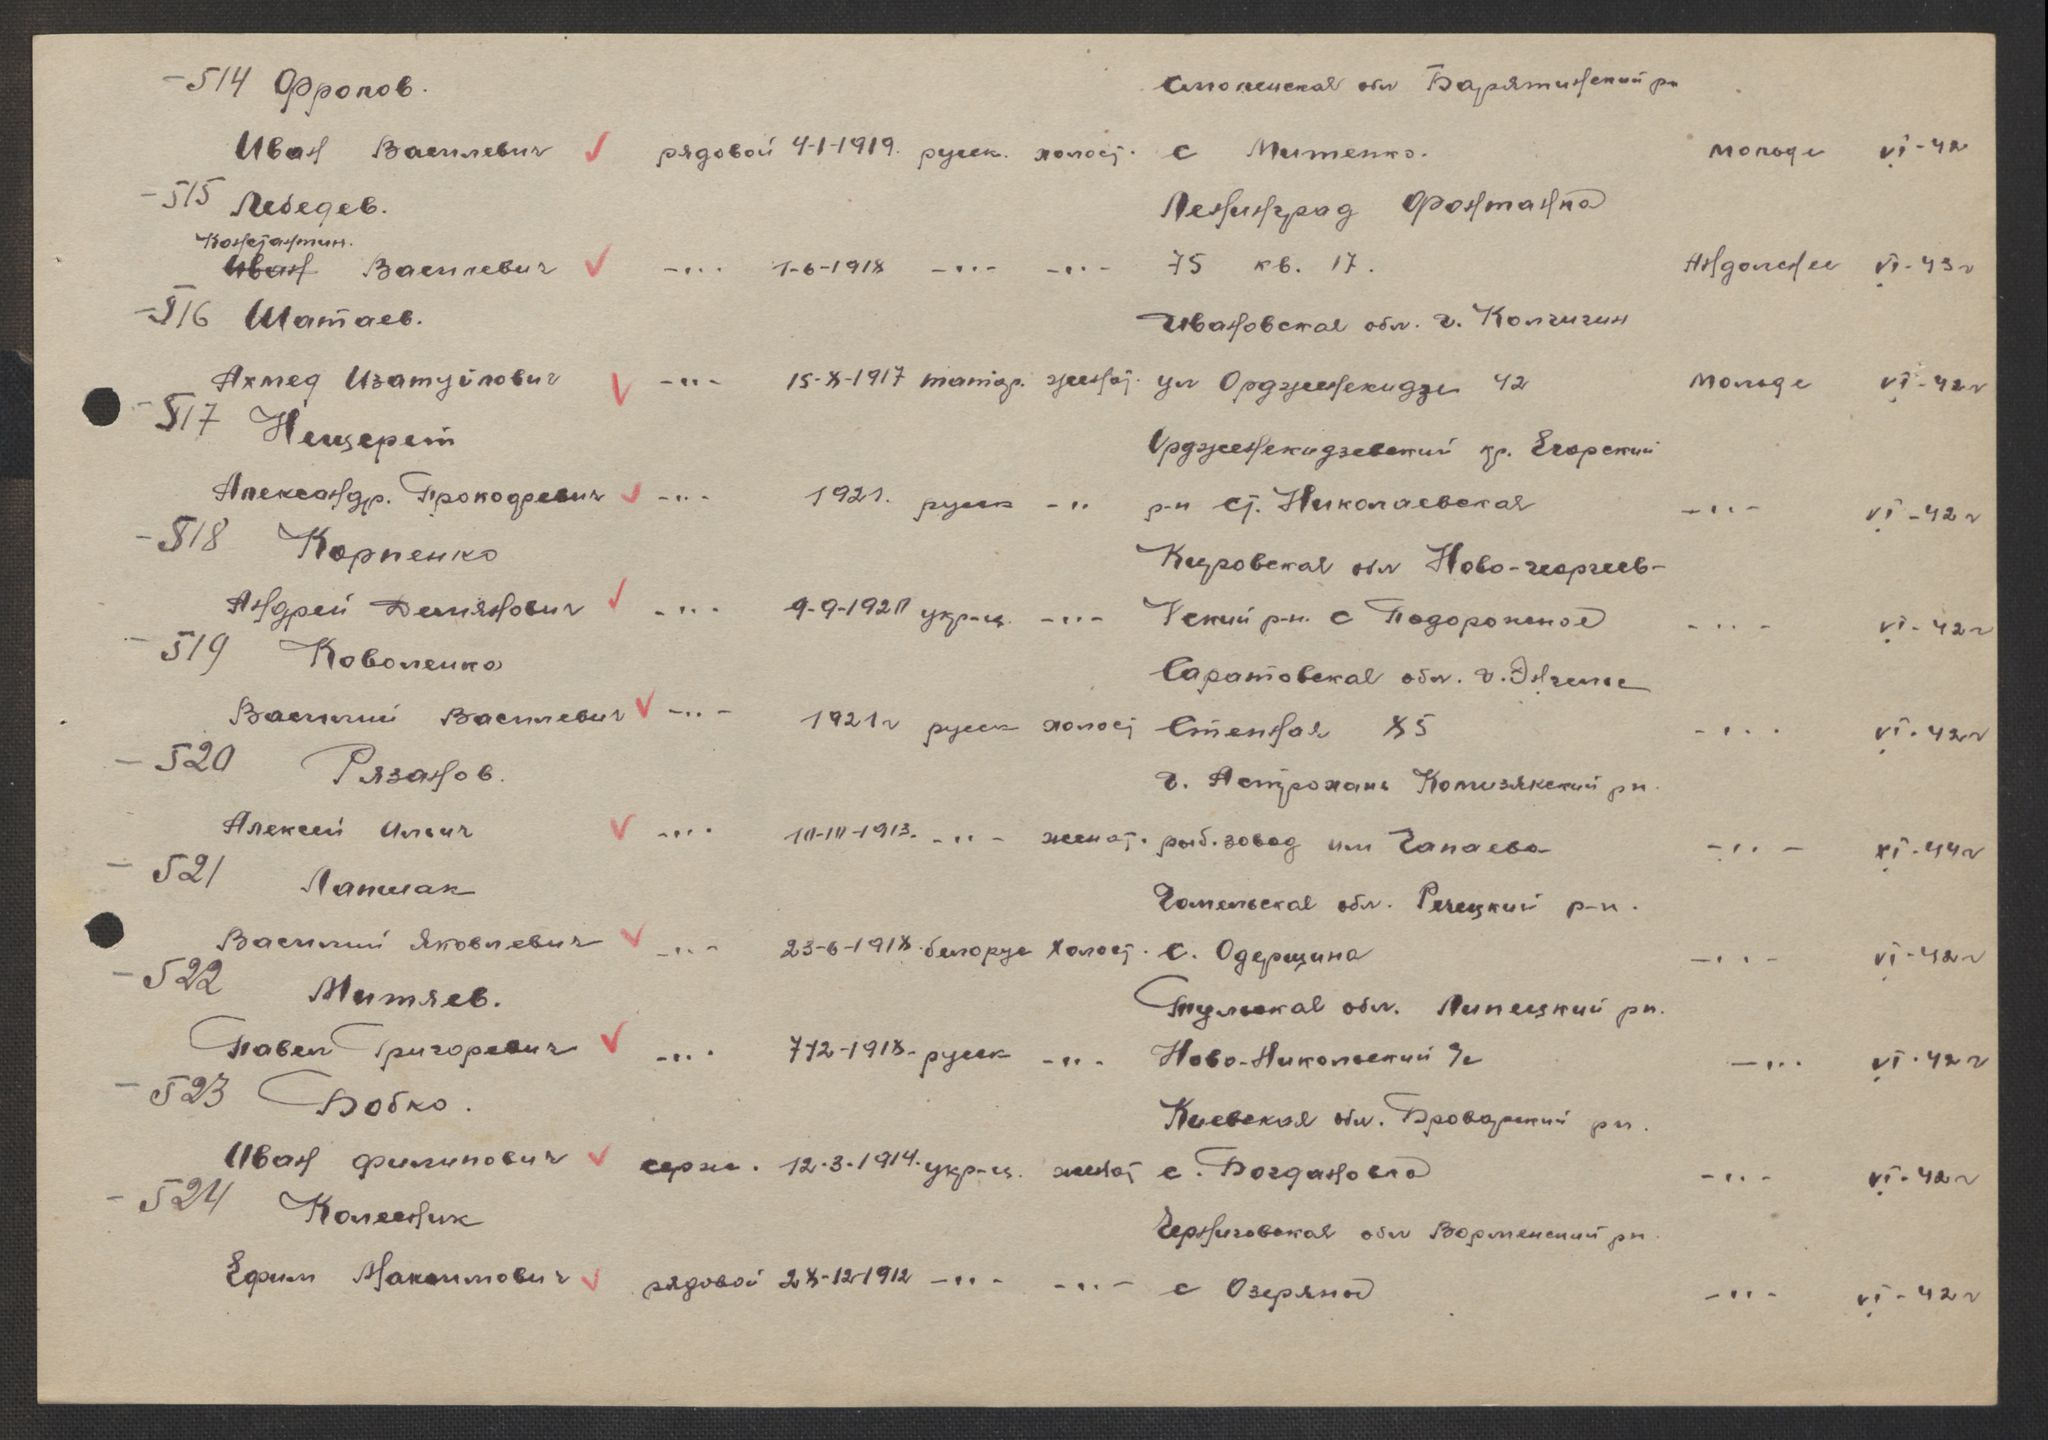 -514 Фролов. Смоленская обл Барятинский рн
Иван Василевич рядовой 4-1-1919. русск. холост. с Митенко. Мольде VI-42
-515 Лебедев. Ленинград Фонтанка
Константин.
Иван Василевич -"- 1-6-1918 -"- -"- 75 кв. 17. Андалснес VI-43 г
-516 Шатаев. Ивановская обл. г. Колчугин
Ахмед Изатулович -"- 15-8-1917 татар. женат. ул Орджоникидзе 42 Мольде VI-42 г
-517 Нещерет Орджоникидзевский кр. Егорский
Александр. Прокофревич -"- 1921. русск -"- р-н ст. Николаевская -"- VI-42 г
-518 Корпенко Кировская обл Ново-георгиев-
Андрей Демянович -"- 9-9-1920 укр-ц. -"- ский р-н. с Подорожная -"- VI-42 г
-519 Коволенко Саратовская обл. г. Энгельс
Василий Василевич -"- 1921 г русск холост Степная 85 -"- VI-42 г
-520 Рязанов. г. Астрохань Комызякский рн.
Алексей Ильич -"- 10-10-1913. -"- женат. рыб. завод им Чапаева -"- XI-44 г
-521 Лапшак Гомельская обл. Речецкий р-н.
Василий Яковлевич -"- 23-6-1918. белорус Холост. с. Одерщина -"- VI-42 г
-522 Митяев. Тульская обл. Липецкий рн.
Павел Григоревич -"- 7-12-1918. русск -"- Ново-Никольский с/с -"- VI-42 г
-523 Бобко. Киевская обл. Броварский рн.
Иван филипович серж. 12-3-1914. укр-ц. женат с. Богдановка -"- VI-42 г
-524 Колесник Черниговская обл Варменский рн.
Ефим Максимович рядовой 28-12-1912 -"- -"- с Озеряна -"- VI-42 г